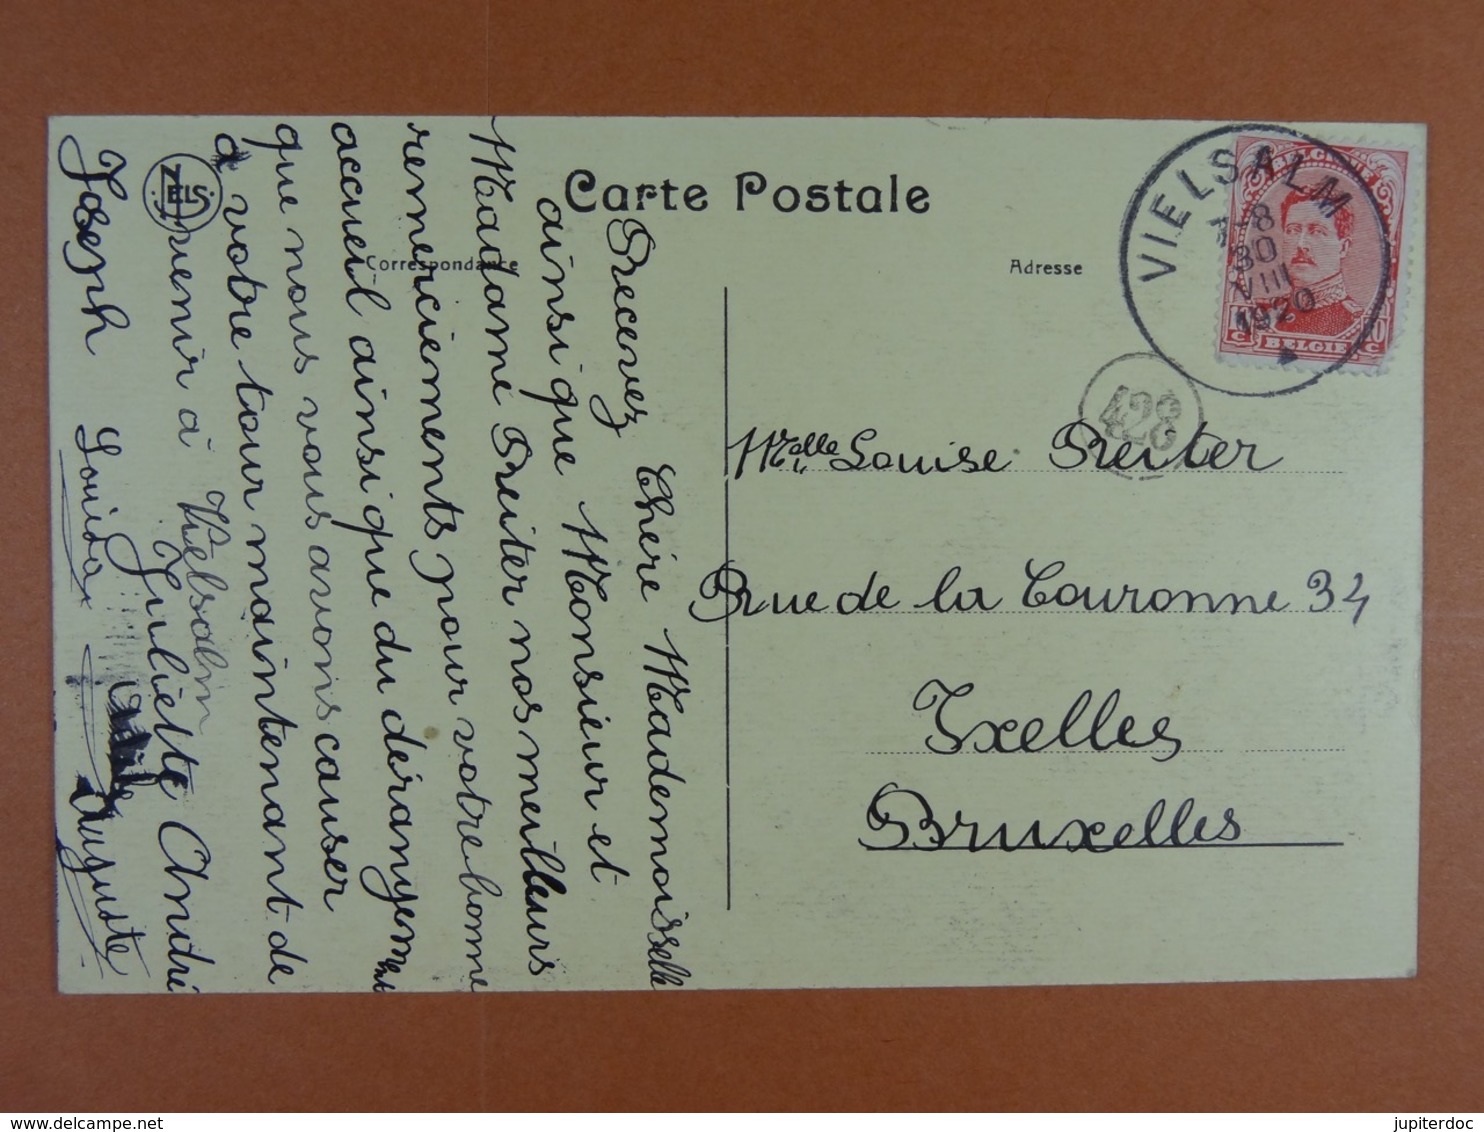 Carte Postale
Correspondance
Adresse
VIELSALM
8
30
VIII
1920
BELGIQUE
BELGIE
10
C
C
428
NELS
Recevez Chère Mademoisselle
ainsi que Monsieur et
Madame Reiter nos meilleurs
remerciements pour votre bonne
accueil ainsi que du déranyement
que nous vous avons causer
à votre tour maintenant de
venir à Vielsalm
Juliette André
Joseph Louisa Auguste
Melle Louise Reiter
Rue de la Couronne 34
Ixelles
Bruxelles
jupiterdoc